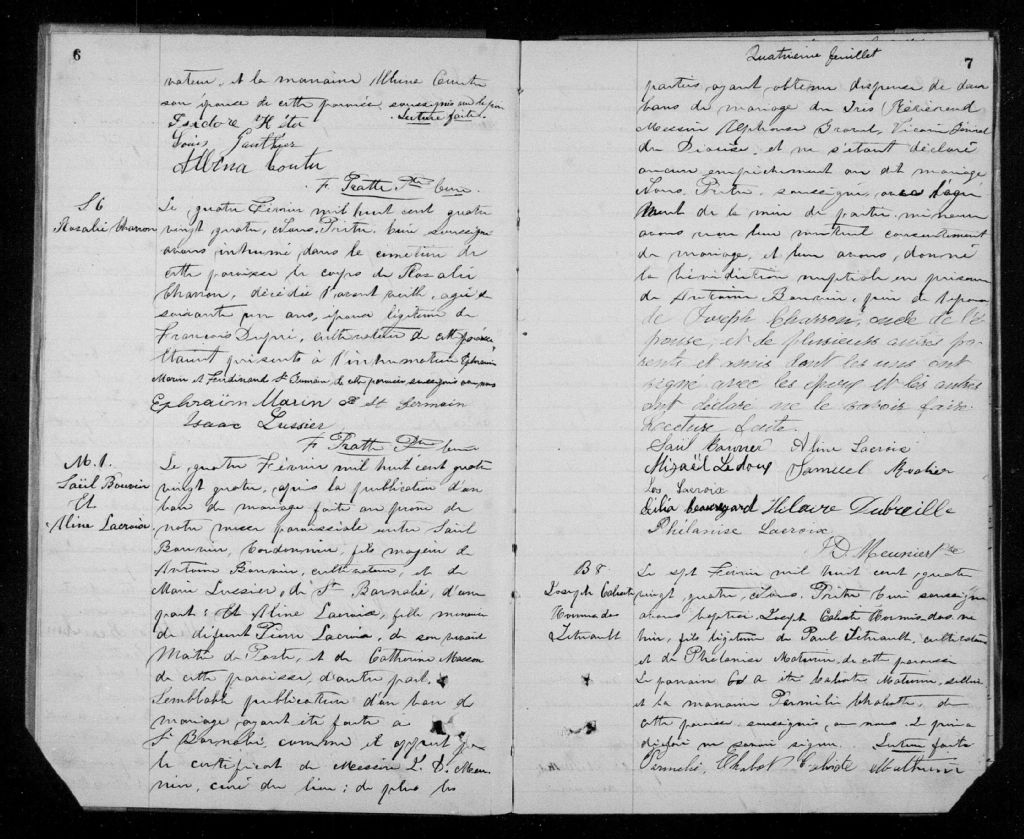 6
vateur, et la marraine Albina Coutu
son épouse de cette paroisse, soussignés
Lecture faite.
Isidore Hétu
Louis Gauthier
Albina Coutu
F. Pratte Ptre Curé.
S 6
Rosalie Charron
Le quatre Février mil huit cent quatre
vingt quatre, Nous, Prêtre, Curé soussigné
avons inhumé dans le cimetière de
cette paroisse le corps de Rosalie
Charron, décédée l'avant veille, agée de
soixante un ans, épouse légitime de
François Dupré, cultivateur de cette paroisse
Etaient présents à l'inhumation Ephraim
Marin et Ferdinand St Germain, de cette paroisse soussignés avec nous
Ephraïm Marin St Germain
Isaac Lussier
F Pratte Ptre Curé
M. 1.
Saül Bouvier
Et
Aline Lacroix
Le quatre Février mil huit cent quatre
vingt quatre, après la publication d'un
ban de mariage faite au prône de
notre messe paroissiale entre Saül
Bouvier, Cordonnier, fils majeur de
Antoine Bouvier, cultivateur, et de
Marie Lussier, de St Barnabé, d'une
part; Et Aline Lacroix, fille mineure
de défunt Pierre Lacroix, de son vivant
Maître de Poste, et de Catherine Masson
de cette paroisse, d'autre part.
Semblable publication d'un ban de
mariage ayant été faite à
St Barnabé, comme il appert par
le certificat de Messire L. D. Meu-
nier, curé du lieu; de plus les
Quatrieme feuillet
7
parties ayant obtenu dispense de deux
bans de mariage du Très Révérend
Messire Alphonse Gravel, Vicaire Général
du Diocèse, et ne s'étant déclaré
aucun empêchement au dit mariage
Nous, Prêtre, soussigné, avec l'agré
ment de la mère de partie mineure
avons reçu leur mutuel consentement
de mariage, et leur avons donné
la bénédiction nuptiale en présence
de Antoine Bouvier, père de l'époux
de Joseph Charron, oncle de l'é-
pouse, et de plusieurs autres pa-
rents et amis dont les uns ont
signé avec les époux et les autres
ont déclaré ne le savoir faire.
Lecture faite.
Saül Bouvier Aline Lacroix
Mizaël Ledoux Samuel
Lacroix
Délia Beauregard Hilaire Dubreuille
Philanise Lacroix
L D. Meunier Ptre
B 8
Joseph Calixte
Hormisdas
Tétreault
Le sept Février mil huit cent quatre
vingt quatre, Nous, Prêtre Curé soussigné
avons baptisé Joseph Calixte Hormisdas, né
hier, fils légitime de Paul Tétreault, cultivateur
et de Philanise Maturin, de cette paroisse
Le parrain a été Calixte Maturin, sellier
et la marraine Permélie Chabotte, de
cette paroisse soussignés avec nous. Le père a
déclaré ne savoir signer. Lecture faite
Permélie Chabot Calixte Mathurin